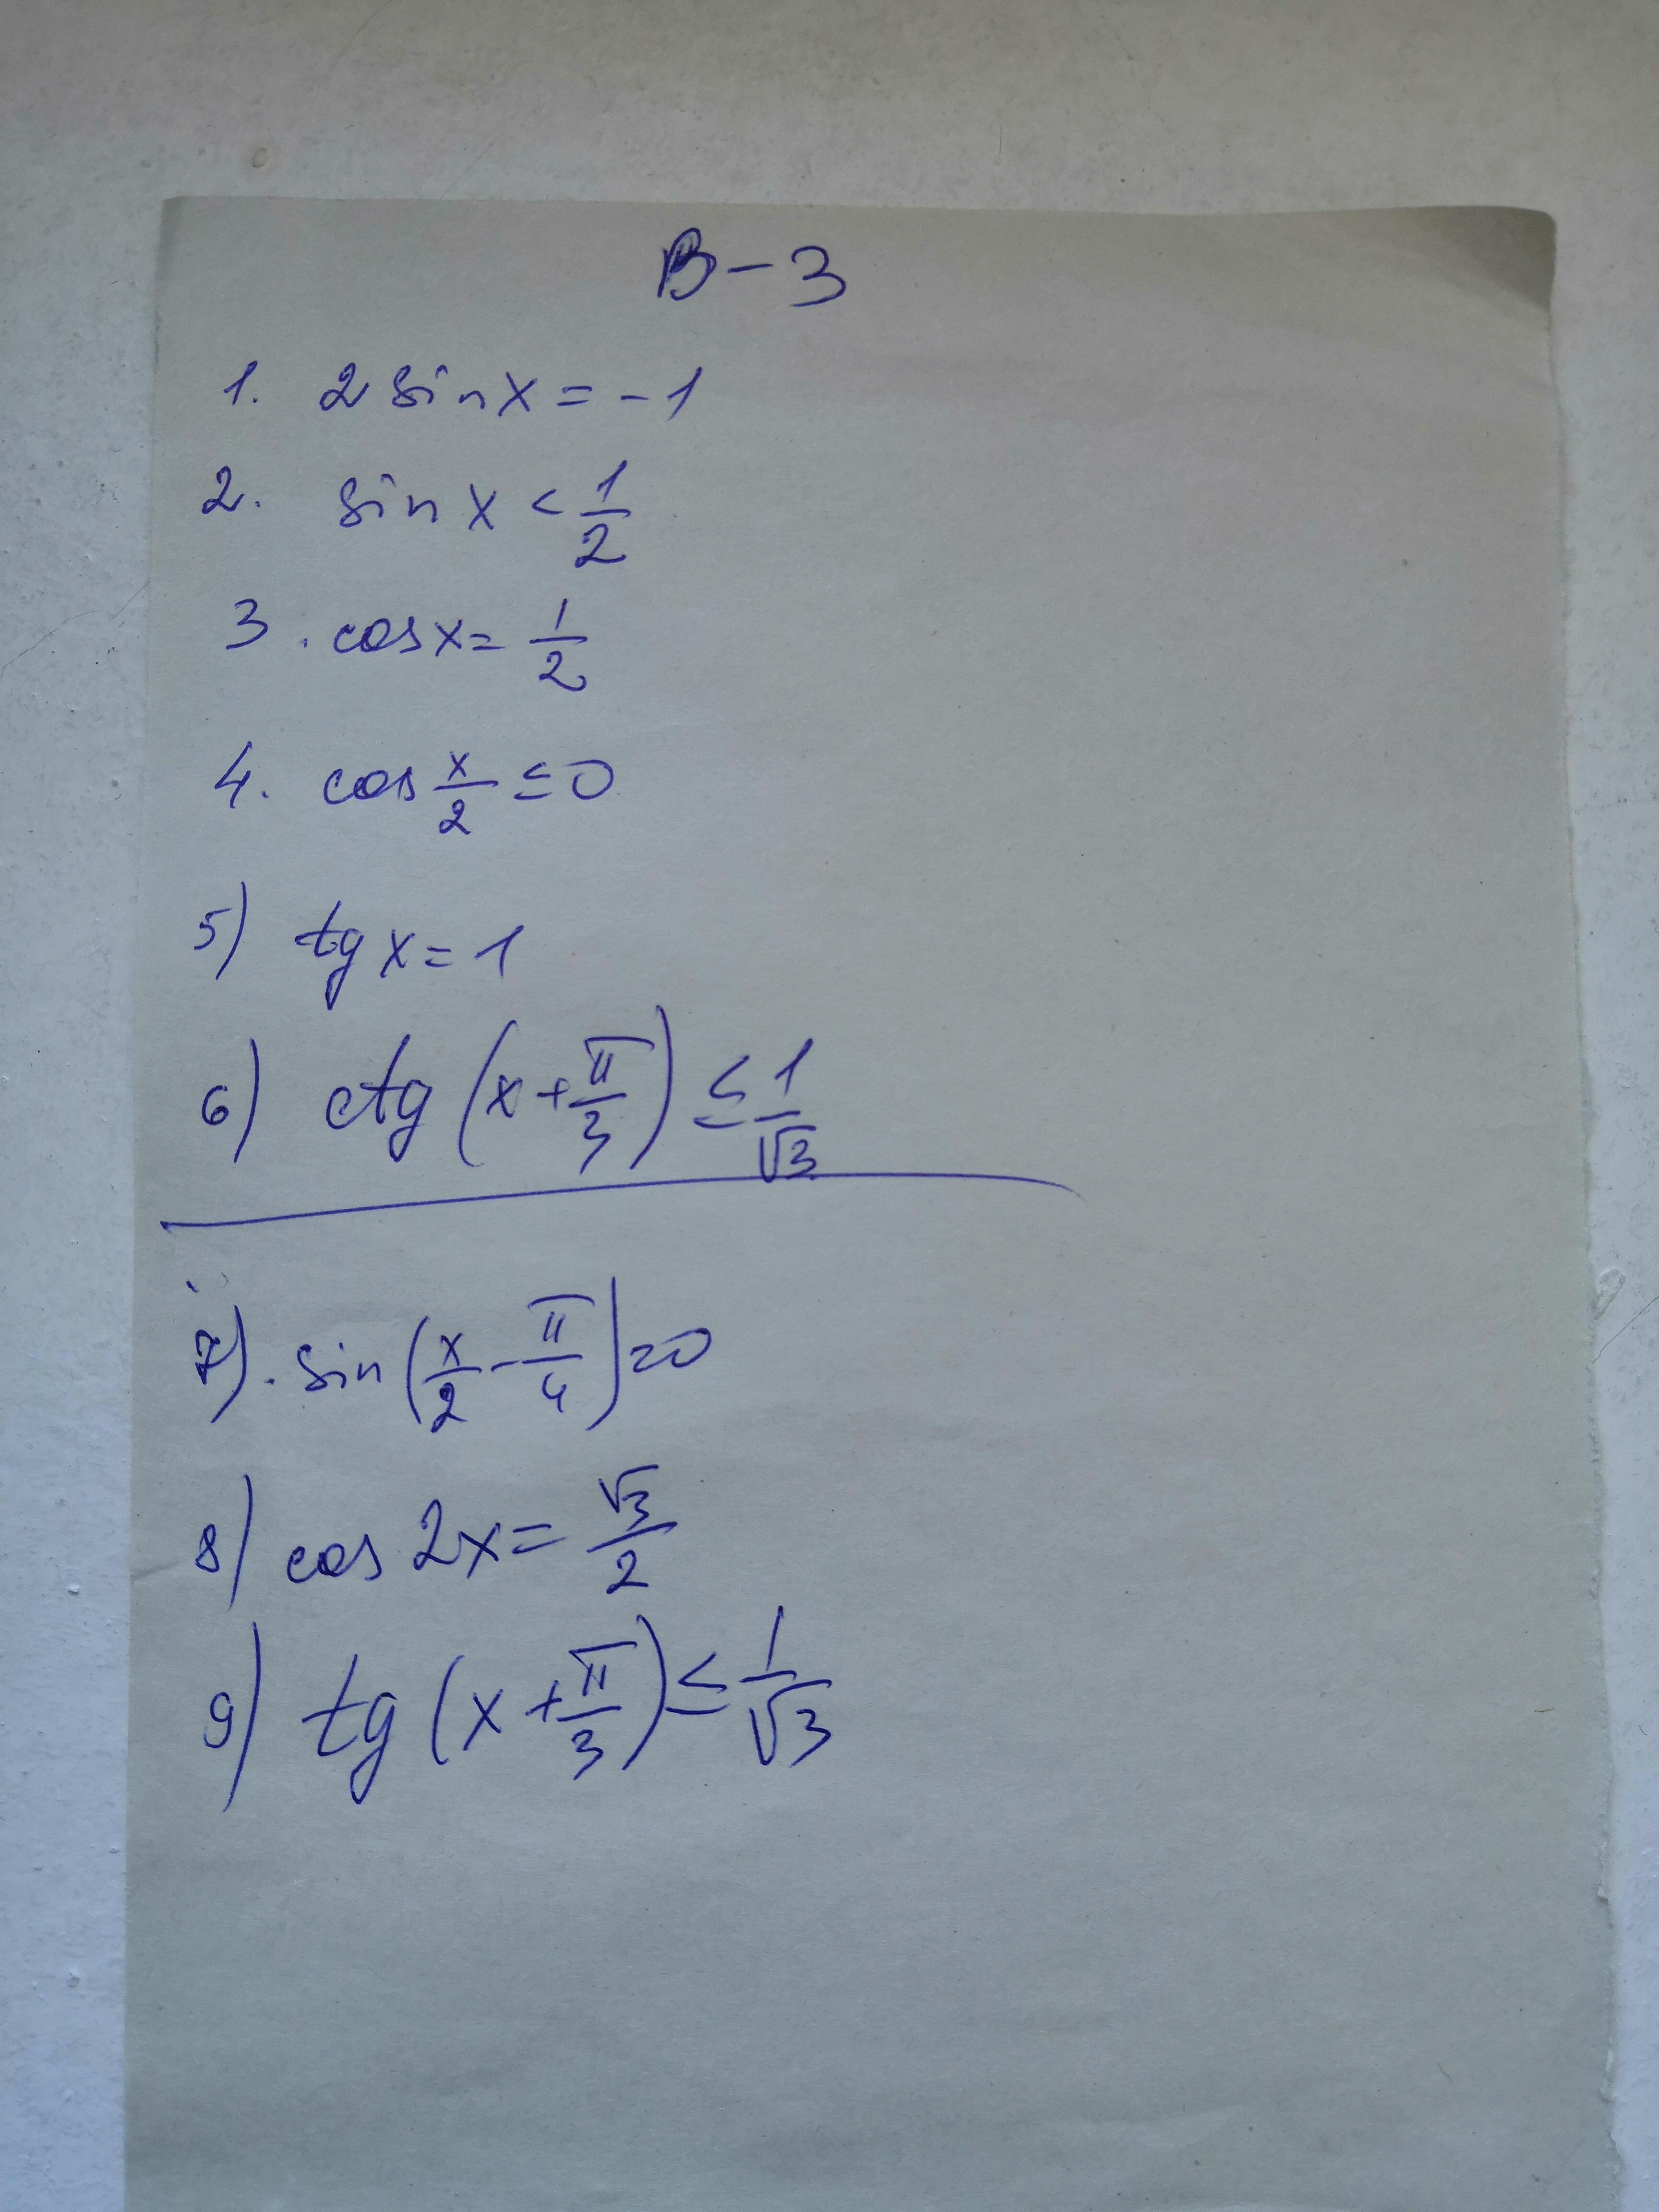 В-3
1. 2 sin x = -1
2. sin x < 1/2
3. cos x = 1/2
4. cos x/2 ≤ 0
5) tg x = 1
6) ctg (x + π/3) ≤ 1/√3
7). sin (x/2 - π/4) = 0
8) cos 2x = √3/2
9) tg (x + π/3) ≤ 1/√3